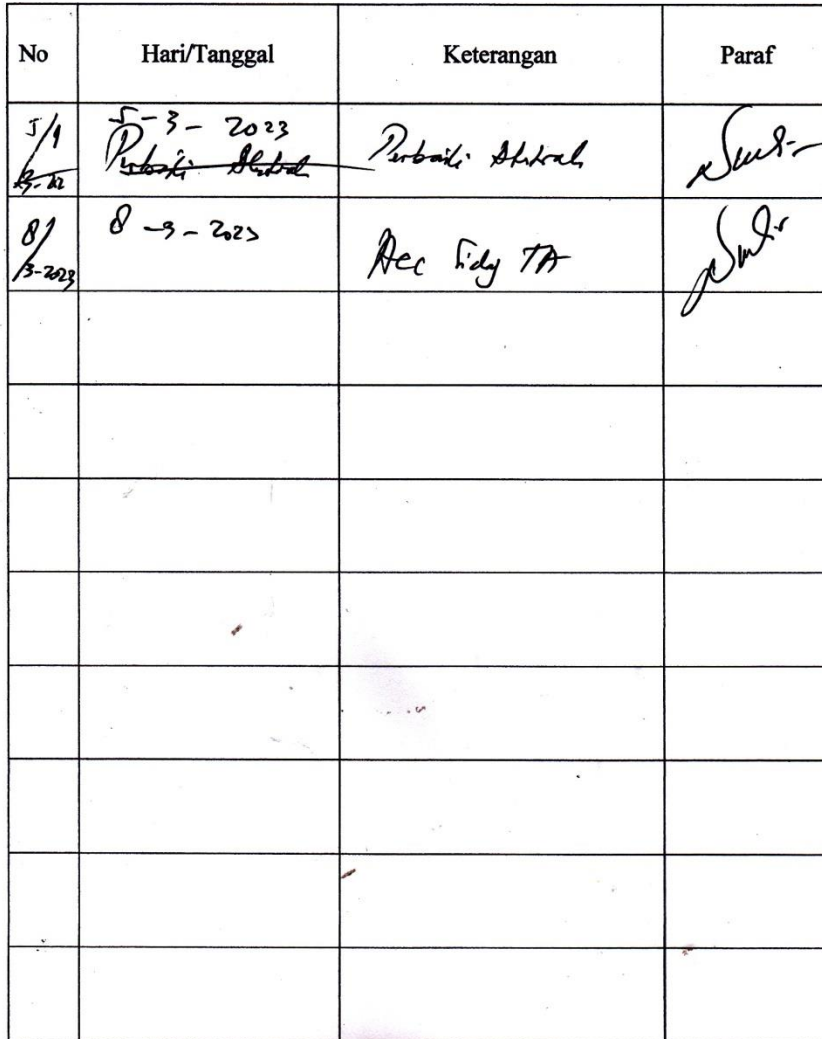 No Hari/Tanggal Keterangan Paraf
5/ 5-3-2023 Perbaiki Abstrak
Perbaiki Abstrak
8/3-2023 8-3-2023 Acc Sidg TA